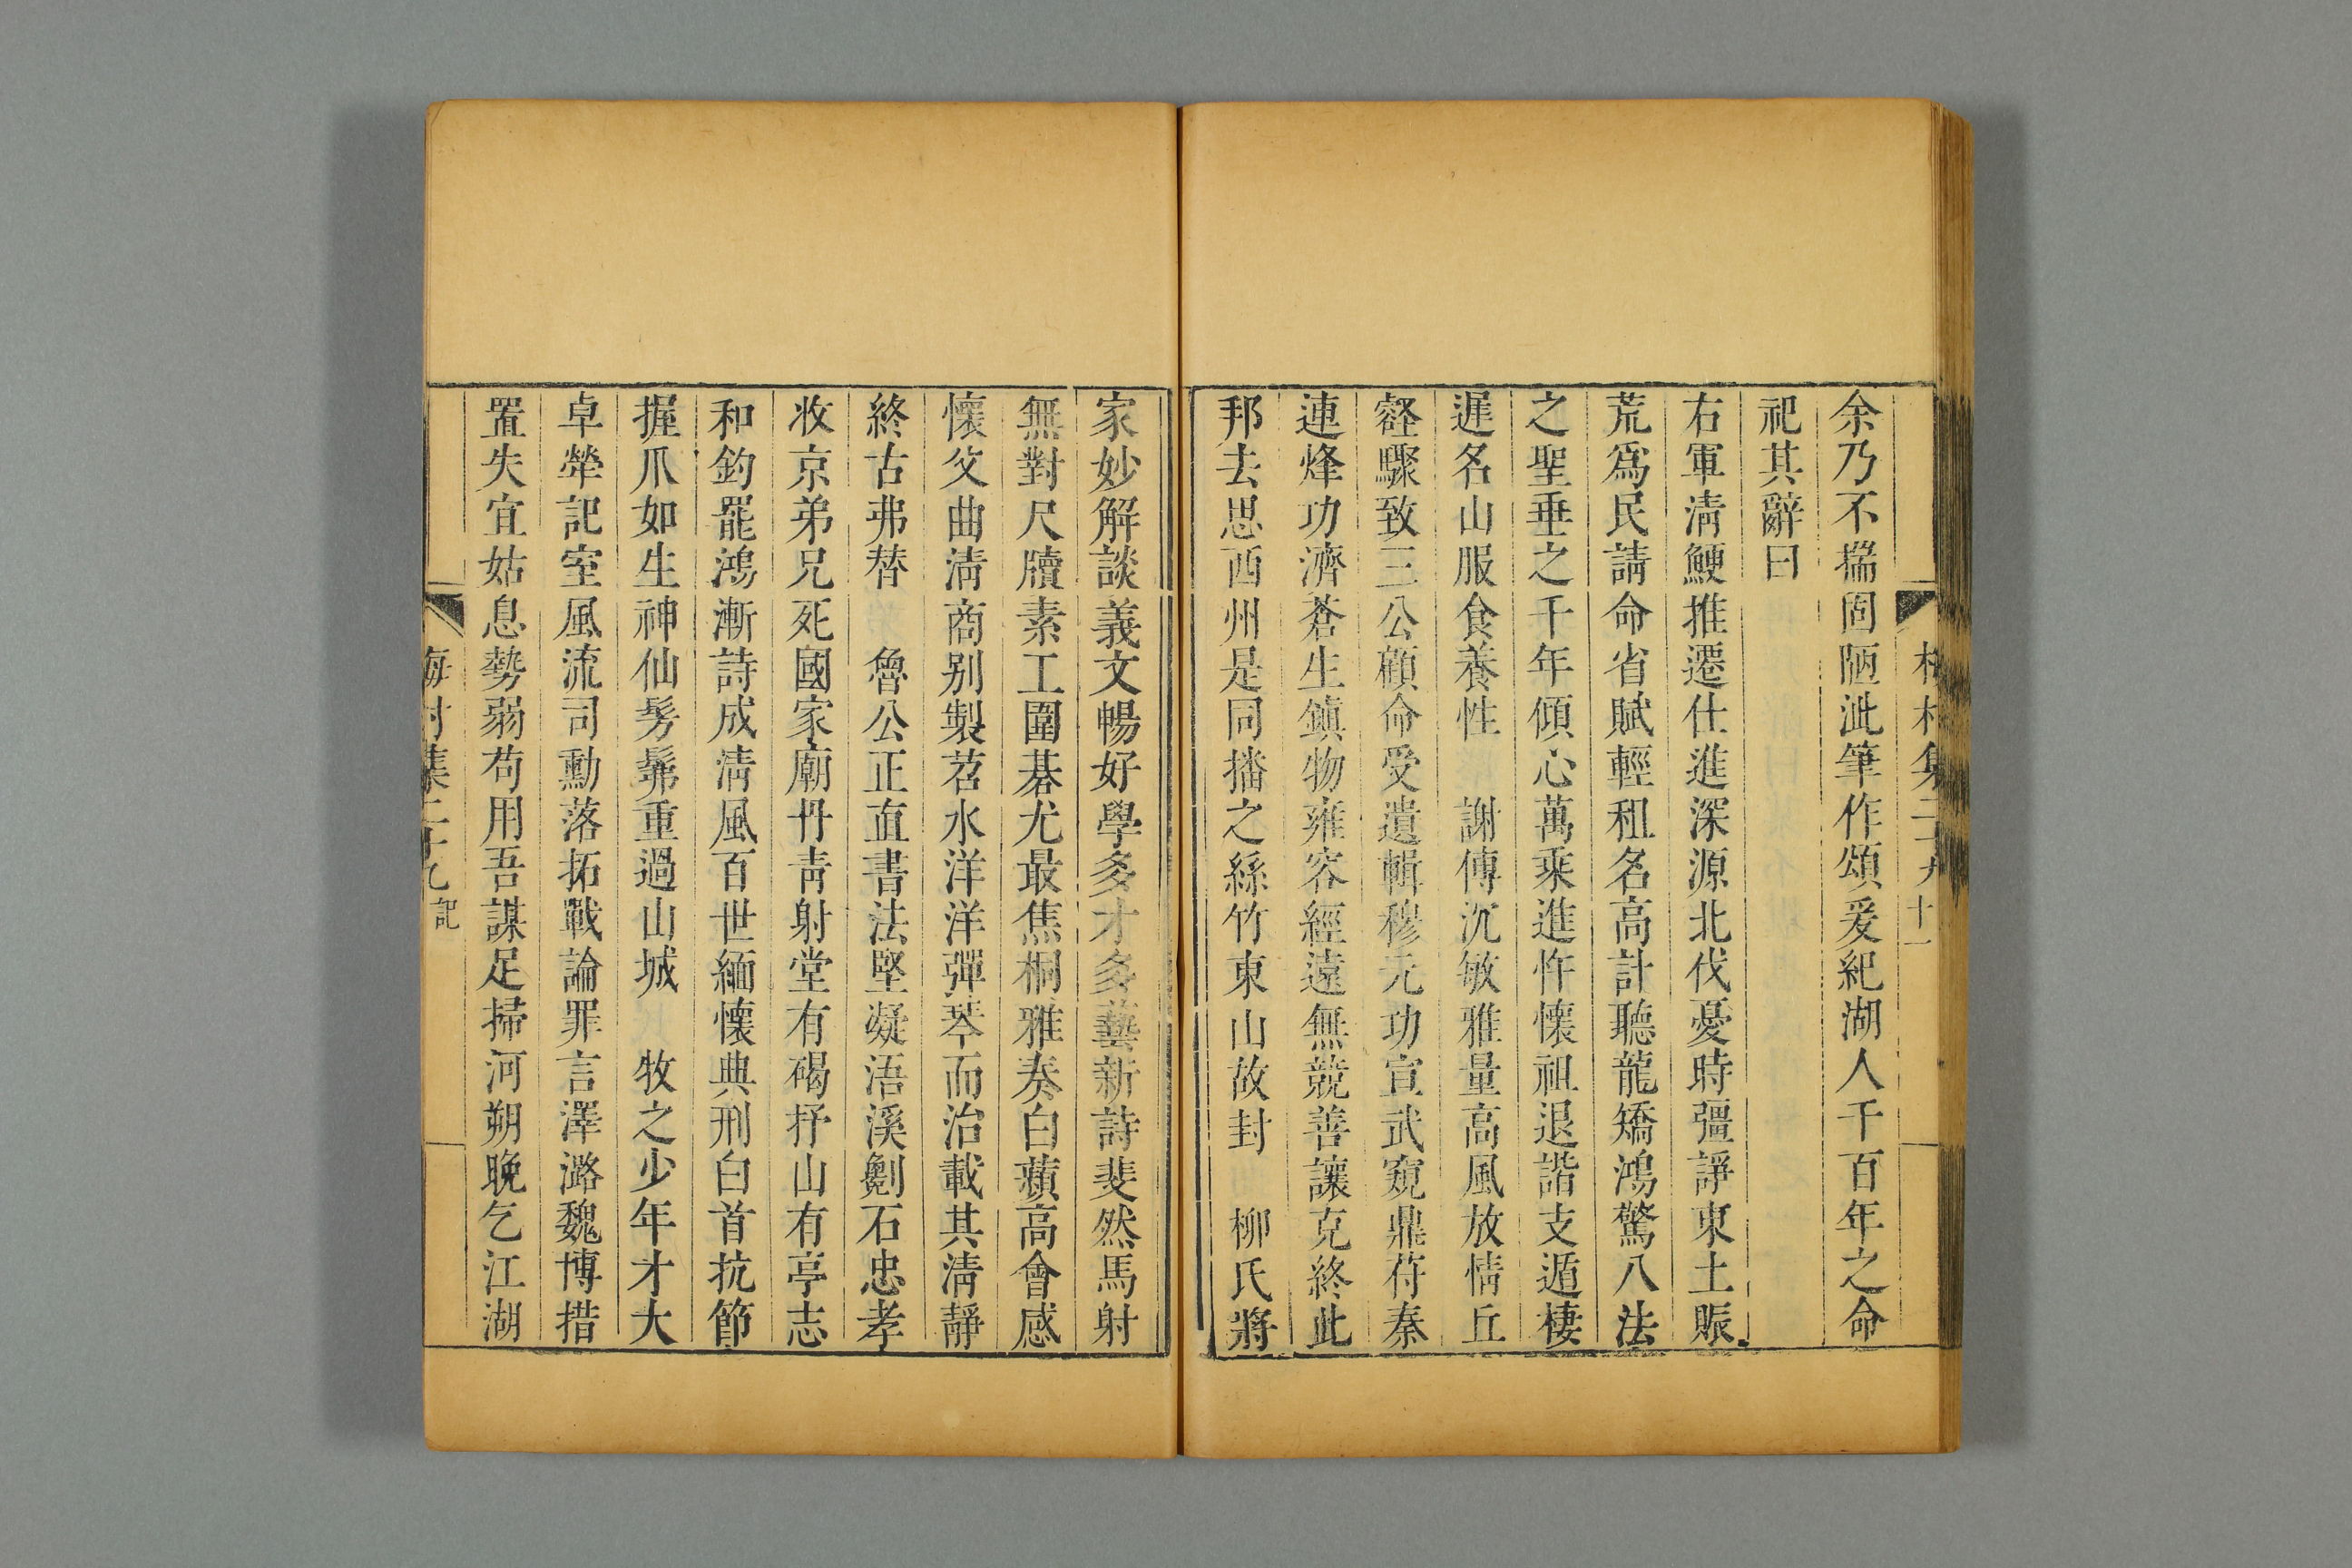 余乃不揣固陋泚筆作頌爰紀湖人千百年之命
祀其辭曰
右軍淸鯁推遷仕進深源北伐憂時彊諍東土賑
荒爲民請命省賦輕租名高計聽龍矯鴻驚八法
之聖垂之千年傾心萬乘進忤懷祖退諧支遁棲
遲名山服食養性　謝傅沉敏雅量高風放情丘
壑驟致三公顧命受遺輯穆元功宣武窺鼎苻秦
連烽功濟蒼生鎮物雍容經遠無競善讓克終此
邦去思西州是同播之絲竹東山故封　柳氏將
家妙解談義文暢好學多才多藝新詩斐然馬射
無對尺牘素工圍碁尤最焦桐雅奏白蘋高會感
懷父曲淸商别製苕水洋洋彈琴而治載其淸靜
終古弗替　魯公正直書法堅凝浯溪劖石忠孝
收京弟兄死國家廟丹靑射堂有碣抒山有亭志
和釣罷鴻漸詩成淸風百世緬懷典刑白首抗節
握爪如生神仙髣髴重過山城　牧之少年才大
卓犖記室風流司勳落拓戰論罪言澤潞魏博措
置失宜姑息勢弱苟用吾謀足掃河朔晚乞江湖
梅村集二十九 十一
梅村集二十九 記